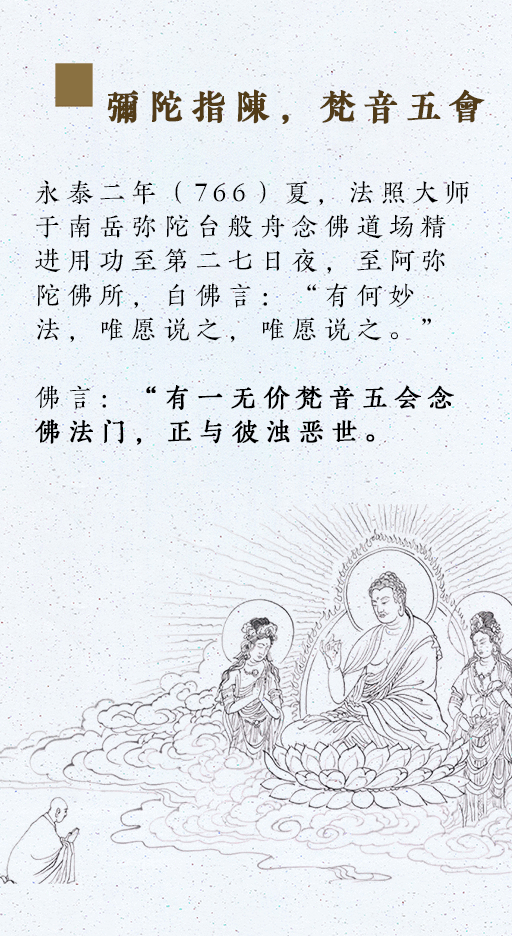 彌陀指陳，梵音五會
永泰二年（766）夏，法照大师
于南岳弥陀台般舟念佛道场精
进用功至第二七日夜，至阿弥
陀佛所，白佛言：“有何妙
法，唯愿说之，唯愿说之。”
佛言：“有一无价梵音五会念
佛法门，正与彼浊恶世。